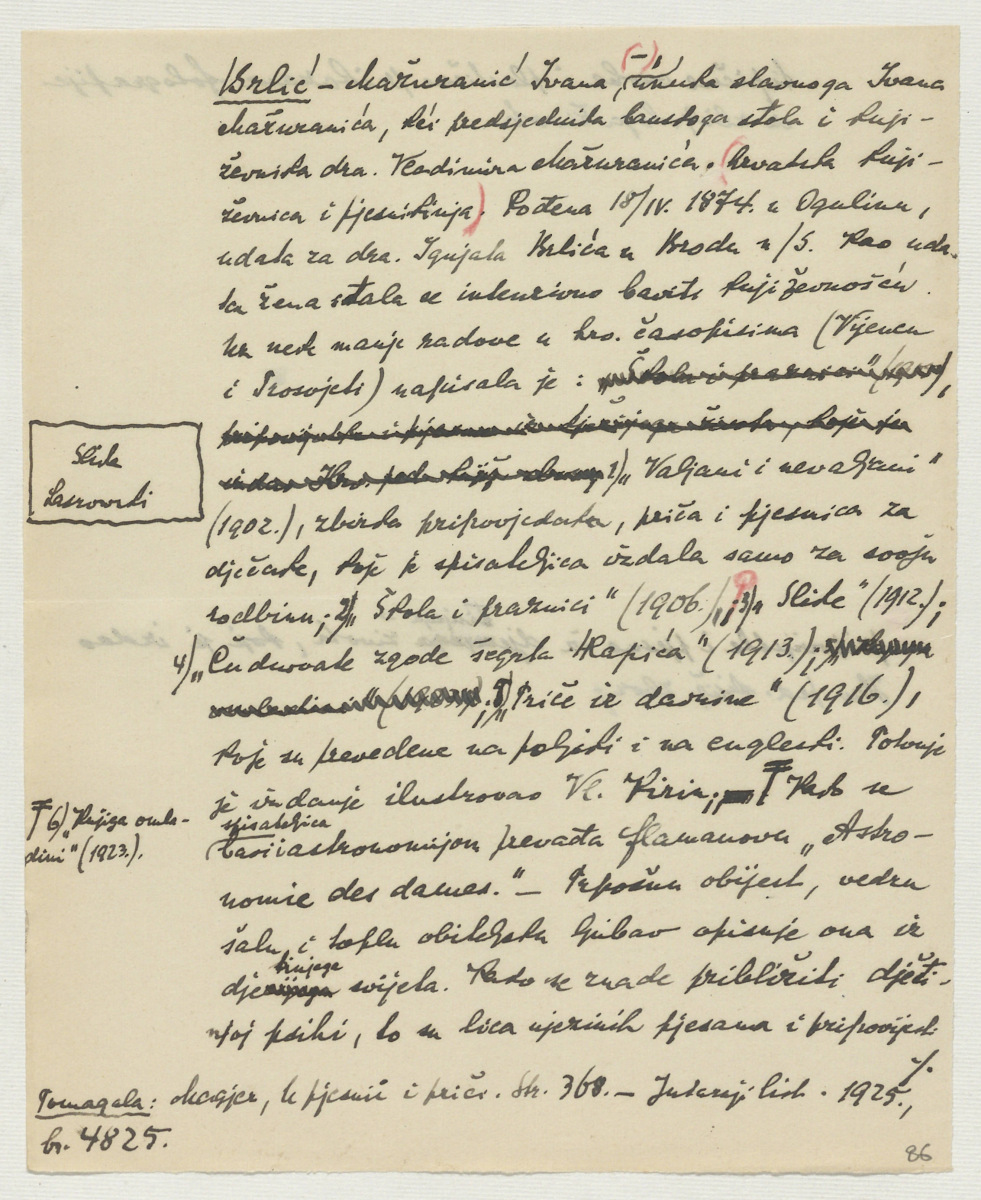 Brlić - Mažuranić Ivana, unuka slavnoga Ivana
Mažuranića, kći predsjednika banskoga stola i knji-
ževnika dra. Vladimira Mažuranića. (hrvatska knji-
ževnica i pjesnikinja). Rođena 18/IV. 1874. u Ogulinu,
udata za dra. Ignjata Brlića u Brodu n/S. Kao uda-
ta žena stala se intenzivno baviti književnošću.
Uz neke manje radove u hrv. časopisima (Vijencu
i Prosvjeti) napisala je: „Škola i praznici"
pripovijetke i pjesme iz dječjega života, koju je
izdao
1) „Valjani i nevaljani"
(1902.), zbirka pripovjedaka, priča i pjesmica za
dječake, koje je spisateljica izdala samo za svoju
rodbinu; 2) „Škola i praznici" (1906.); 3) „Slike" (1912.);
4) „Čudnovate zgode šegrta Hlapića" (1913.);
„Priče iz davnine" (1916.),
koje su prevedene na poljski i na engleski. Potonje
je izdanje ilustrovao Vl. Kirin;
Kako se
spisateljica
bavi i astronomijom prevađa Flamanovu „Astro-
nomie des dames." - Raskošnu obijest, vedru
šalu i toplu obiteljsku ljubav opisuje ona iz
dječjega svijeta. Kako se znade približiti dječi-
njoj psihi, to su lica njezinih pjesama i pripovijest
./.
Slike
Laszowski
6) „Knjiga omla-
dini" (1923.).
Pomagala: Megjer, U pjesmi i priči. Str. 368. - Jutarnji list. 1925.,
br. 4825.
86